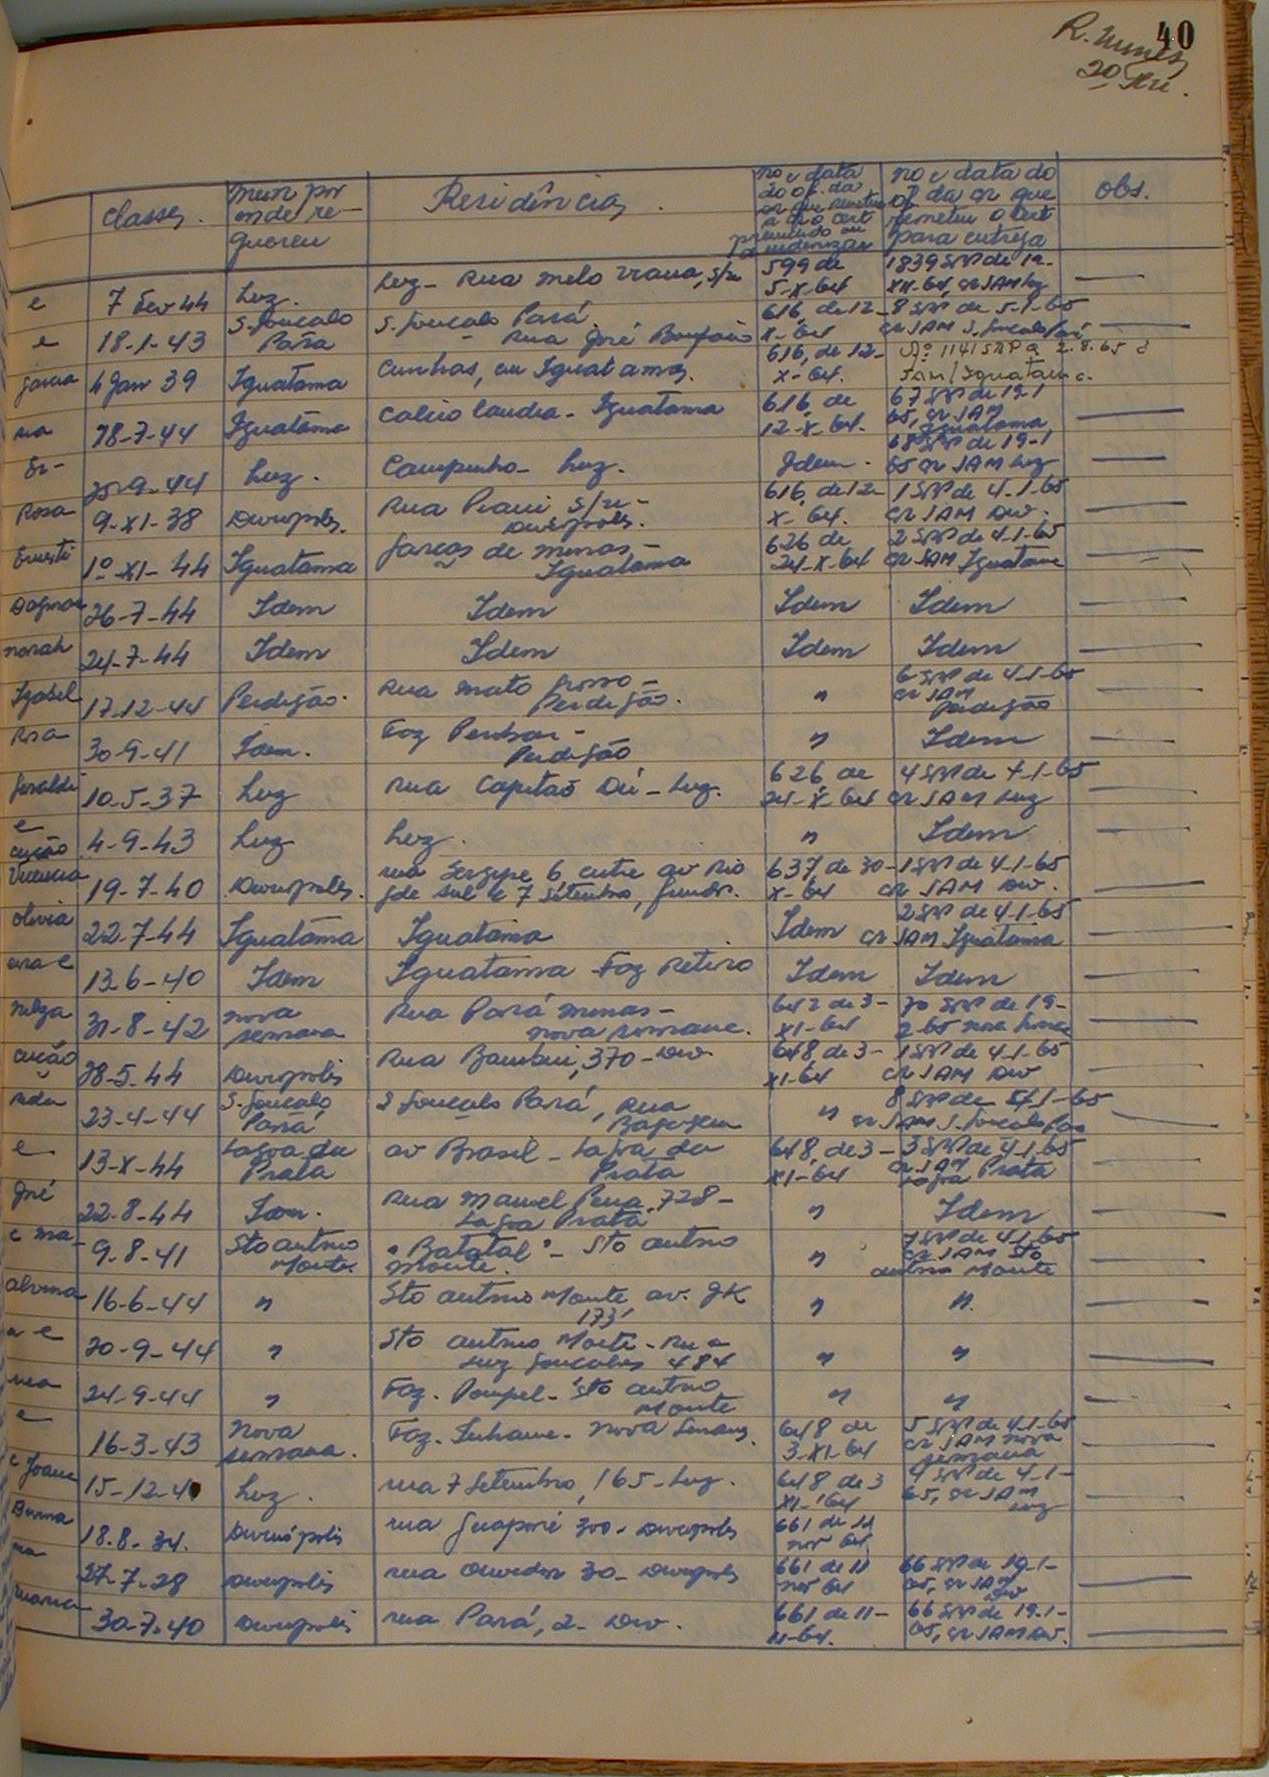 40
R. Nunes
20
Classes. mun por onde requereu Residências. no e data do of. da cr que remeteu a o cert no e data do of da cr que remeteu o cert para entrega Obs.
e 7 Fev 44 Luz. Luz - Rua Melo Viana, s/n 599 de 5-X-64 1839 SRP de
e 18-1-43 S. Gonçalo Pará S. Gonçalo Pará - Rua José Bonifácio 616, de 12-X-64 8 SRP de 5-1-65 cr JAM S. Gonçalo Pará
Garcia 4 Jan 39 Iguatama Cunhas, em Iguatama. 616, de 12-X-64. Nº 1141 SRP a 2.8.65 JAM/Iguatama.
ria 28-7-44 Iguatama Calciolandia - Iguatama 616, de 12-X-64. 67 SRP de 19-1-65, cr JAM Iguatama
Er- 25-9-44 Luz. Campinho - Luz. Idem. 68 SRP de 19-1-65 cr JAM Luz
Rosa 9-XI-38 Divinópolis. Rua Piaui s/n - Divinópolis. 616, de 12-X-64. 1 SRP de 4-1-65 cr JAM Div.
Ernesti 1º-XI-44 Iguatama Garças de Minas - Iguatama 626 de 24-X-64 2 SRP de 4-1-65 cr JAM Iguatama
Dagmar 26-7-44 Idem Idem Idem Idem
Norah 24-7-44 Idem Idem Idem Idem
Izabel 17-12-44 Perdigão. Rua Mato Grosso - Perdigão. " 6 SRP de 4-1-65 cr JAM Perdigão
Rosa 30-9-41 Idem. Faz - Perdigão " Idem
Geraldi 10-5-37 Luz Rua Capitão - Luz. 626 de 24-X-64 4 SRP de 4-1-65 cr JAM Luz
e 4-9-43 Luz Luz. " Idem
cução Vicencia 19-7-40 Divinópolis. rua Sergipe 6 entre av Rio Gde Sul e 7 Setembro, fundos. 637 de 30-X-64 1 SRP de 4-1-65 cr JAM Div.
Olivia 22-7-44 Iguatama Iguatama Idem 2 SRP de 4-1-65 cr JAM Iguatama
ana e 13-6-40 Idem Iguatama Faz Retiro Idem Idem
Nilza 31-8-42 Nova Serrana Rua Pará Minas - Nova Serrana. 642 de 3-XI-64 70 SRP de 19-2-65
cução 28-5-44 Divinópolis Rua Bambui, 370 - Div. 648 de 3-XI-64 1 SRP de 4-1-65 cr JAM Div
23-4-44 S. Gonçalo Pará S Gonçalo Pará, Rua Bagagem " 8 SRP de 5-1-65 cr JAM S. Gonçalo Pará
e 13-X-44 Lagoa da Prata av Brasil - Lagoa da Prata 648, de 3-XI-64 3 SRP de 4-1-65 cr JAM Lagoa Prata
José 22-8-44 Idem. Rua Manuel Pena, 728 - Lagoa Prata " Idem
e Ma- 9-8-41 Sto Antonio Monte. "Batatal" - Sto Antonio Monte. " 7 SRP de 4-1-65 cr JAM Sto Antonio Monte
Alvina 16-6-44 " Sto Antonio Monte av. JK 173 " "
a e 20-9-44 " Sto Antonio Monte - Rua Luiz Gonçalves 484 " "
24-9-44 " Faz. Pompel - Sto Antonio Monte " "
e 16-3-43 Nova Serrana. Faz. Inhame - Nova Serrana. 648 de 3-XI-64 5 SRP de 4-1-65 cr JAM Nova Serrana
e Joana 15-12-4 Luz. rua 7 Setembro, 165 - Luz. 648 de 3 XI-64 4 SRP de 4-1-65, cr JAM Luz
18.8.34. Divinópolis rua Guaporé 300 - Divinópolis 661 de 11 nov 64
na 27-7-28 Divinópolis rua Ouvidor 30 - Divinópolis 661 de 11 nov 64 66 SRP de 19-1-65, cr JAM Div
Maria 30-7-40 Divinópolis rua Pará, 2 - Div. 661 de 11-11-64. 66 SRP de 19.1-65, cr JAM Div.